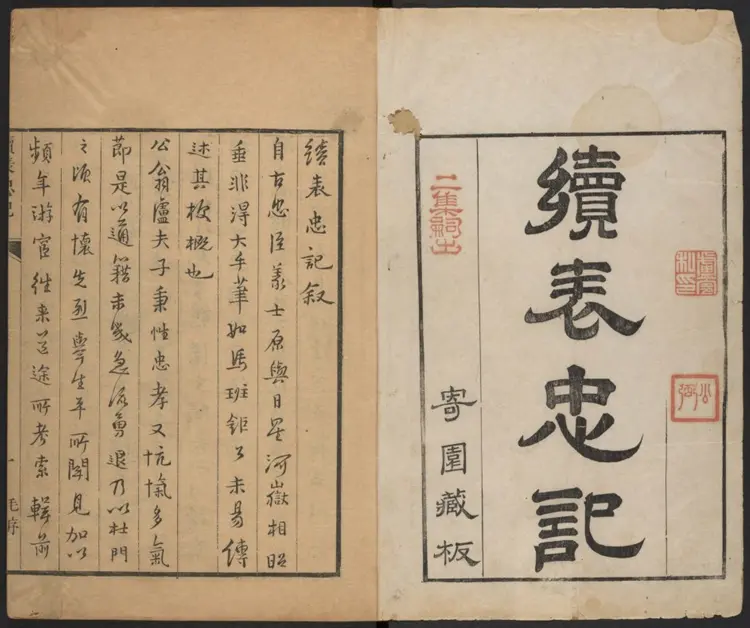 盧宜私印
續表忠記
二集嗣出
寄園藏板
續表忠記叙
自古忠臣義士原與日星河嶽相昭
垂非得大手筆如馬班鉅公未易傳
述其梗概也
公翁盧夫子秉性忠孝又忼愾多氣
節是以通籍未幾急流勇退乃以杜門
之頃有懷先烈舉生平所聞見加以
頻年游宦往來道途所考索輯前
續表忠記
一 毛序